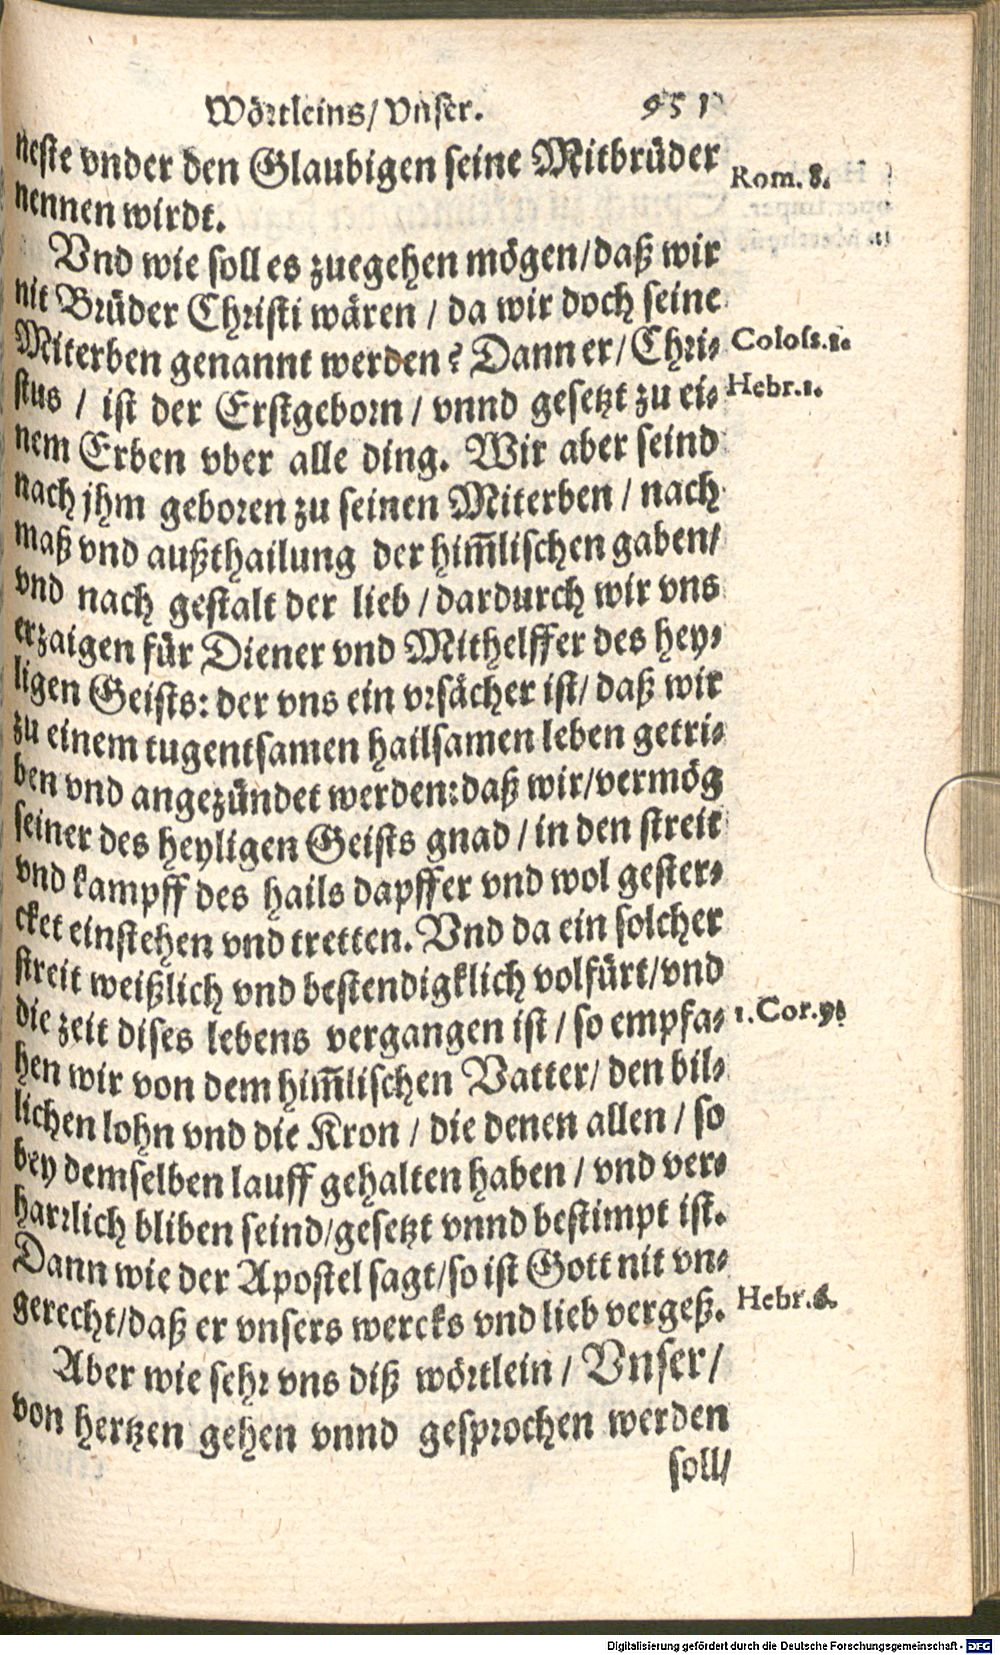 Wörtleins/ Vnser. 951
neste vnder den Glaubigen seine Mitbrüder
nennen wirdt. Rom. 8.
Vnd wie soll es zuegehen mögen/ daß wir
nit Brüder Christi wären / da wir doch seine
Miterben genannt werden? Dann er/ Chri- Coloss. 1.
stus / ist der Erstgeborn / vnnd gesetzt zu ei- Hebr. 1.
nem Erben vber alle ding. Wir aber seind
nach jhm geboren zu seinen Miterben / nach
maß vnd außthailung der him̅lischen gaben/
vnd nach gestalt der lieb / dardurch wir vns
erzaigen für Diener vnd Mithelffer des hey-
ligen Geists: der vns ein vrsächer ist/ daß wir
zu einem tugentsamen hailsamen leben getri-
ben vnd angezündet werden: daß wir/ vermög
seiner des heyligen Geists gnad / in den streit
vnd kampff des hails dapffer vnd wol gester-
cket einstehen vnd tretten. Vnd da ein solcher
streit weißlich vnd bestendigklich volfürt/ vnd
die zeit dises lebens vergangen ist / so empfa- 1. Cor. 9.
hen wir von dem him̅lischen Vatter/ den bil-
lichen lohn vnd die Kron / die denen allen / so
bey demselben lauff gehalten haben / vnd ver-
harrlich bliben seind/ gesetzt vnnd bestimpt ist.
Dann wie der Apostel sagt/ so ist Gott nit vn-
gerecht/ daß er vnsers wercks vnd lieb vergeß. Hebr. 6.
Aber wie sehr vns diß wörtlein / Vnser /
von hertzen gehen vnnd gesprochen werden
soll/
Digitalisierung gefördert durch die Deutsche Forschungsgemeinschaft - DFG